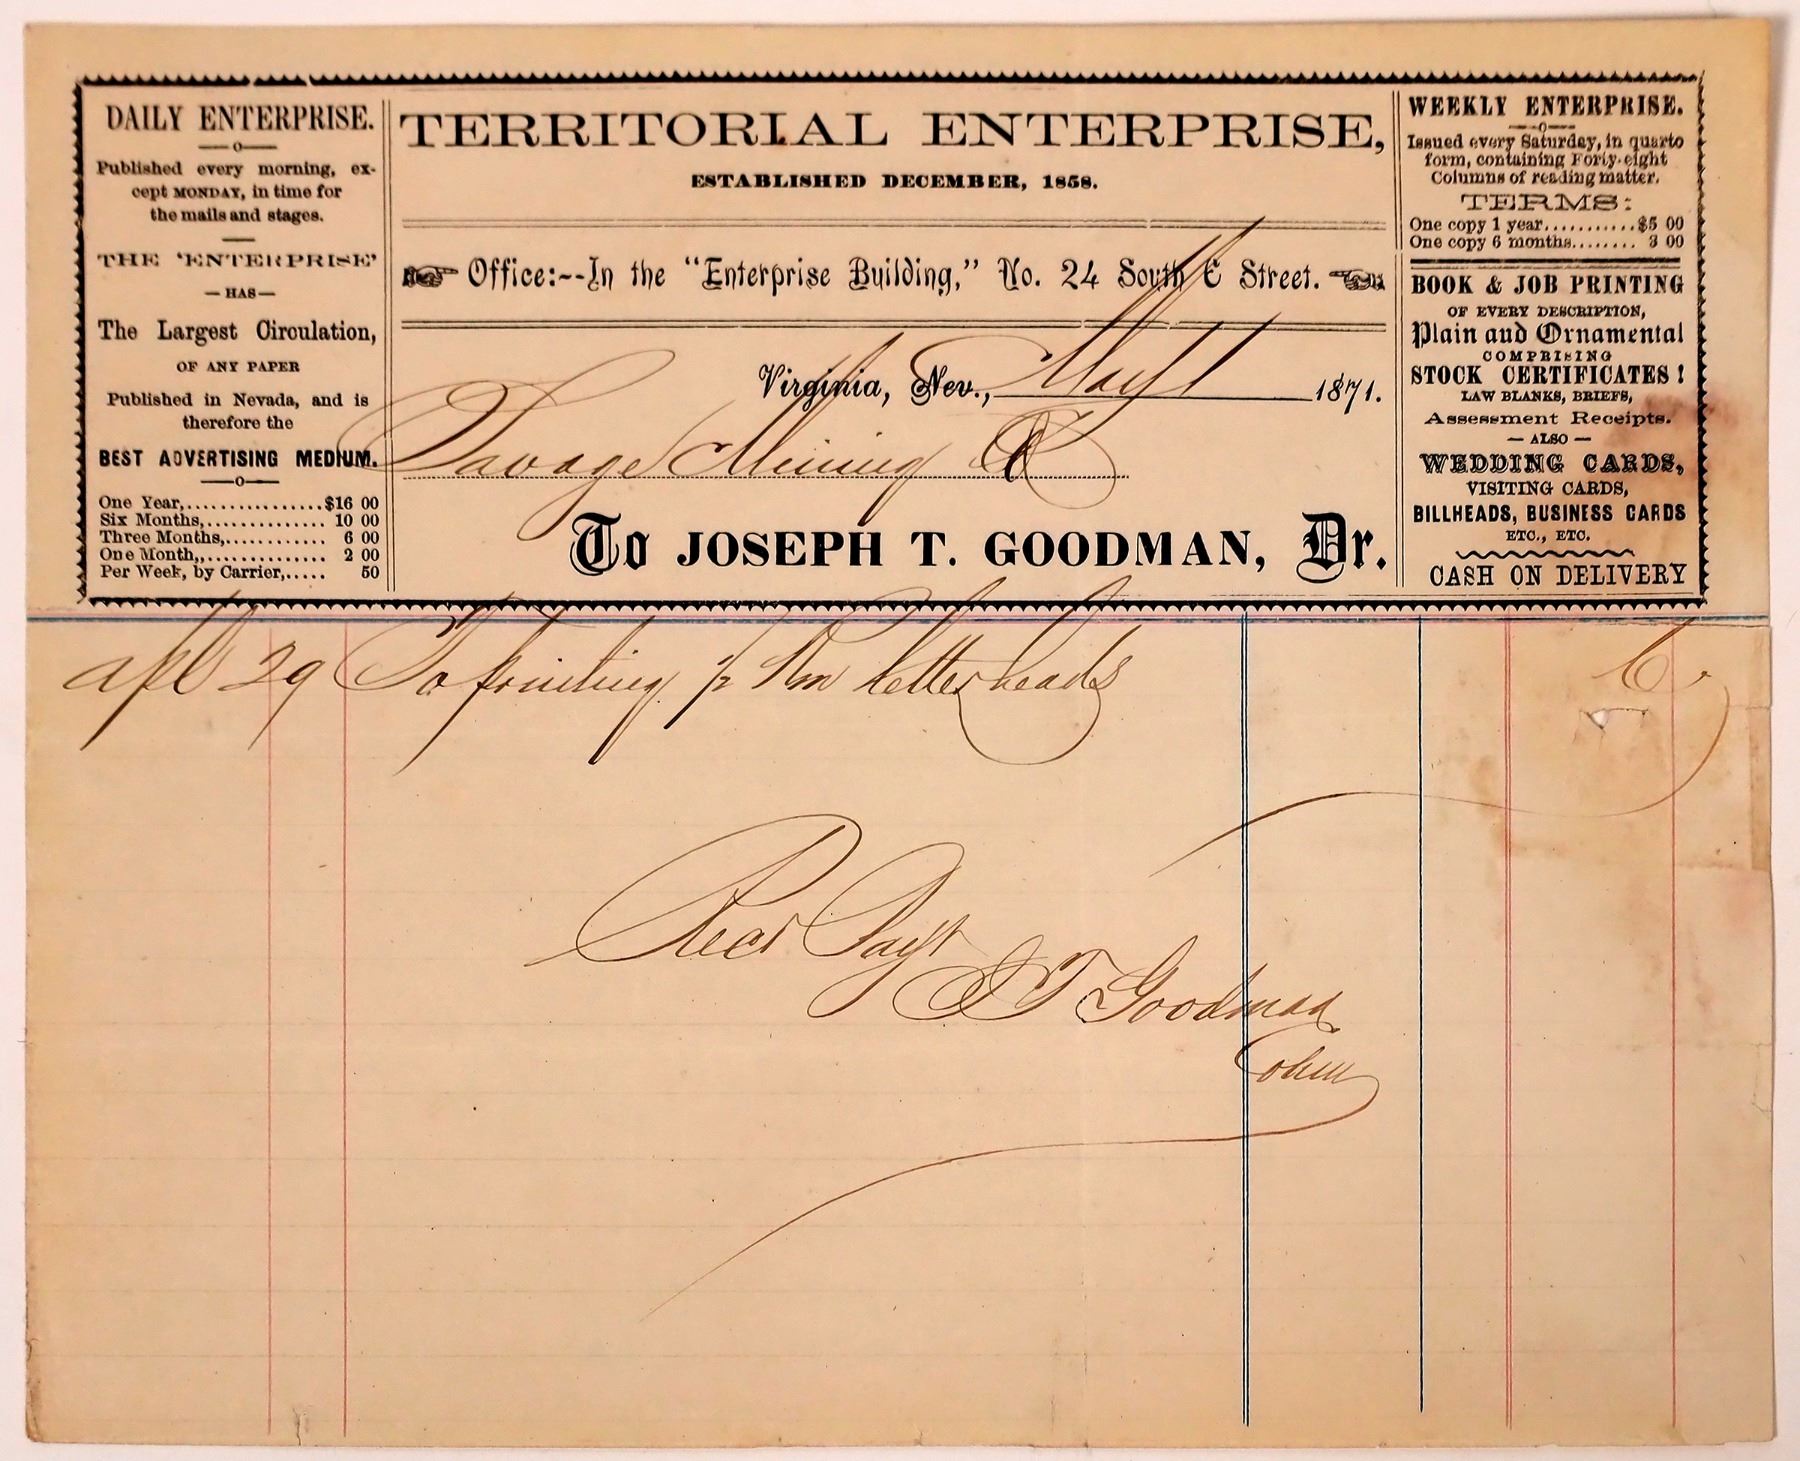 DAILY ENTERPRISE.
Published every morning, ex-
cept MONDAY, in time for
the mails and stages.
THE 'ENTERPRISE'
— HAS —
The Largest Circulation,
OF ANY PAPER
Published in Nevada, and is
therefore the
BEST ADVERTISING MEDIUM.
One Year,................$16 00
Six Months,.............. 10 00
Three Months,............ 6 00
One Month,,.............. 2 00
Per Week, by Carrier,..... 50
TERRITORIAL ENTERPRISE,
ESTABLISHED DECEMBER, 1858.
Office:--In the "Enterprise Building," No. 24 South C Street.
Virginia, Nev., May 1 1871.
Savage Mining Co
To JOSEPH T. GOODMAN, Dr.
WEEKLY ENTERPRISE.
Issued every Saturday, in quarto
form, containing Forty-eight
Columns of reading matter.
TERMS:
One copy 1 year...........$5 00
One copy 6 months........ 3 00
BOOK & JOB PRINTING
OF EVERY DESCRIPTION,
Plain and Ornamental
COMPRISING
STOCK CERTIFICATES!
LAW BLANKS, BRIEFS,
Assessment Receipts.
— ALSO —
WEDDING CARDS,
VISITING CARDS,
BILLHEADS, BUSINESS CARDS
ETC., ETC.
CASH ON DELIVERY
Apl 29 To printing ½ Rm Letterheads 6.
Recd Payt
J T Goodman